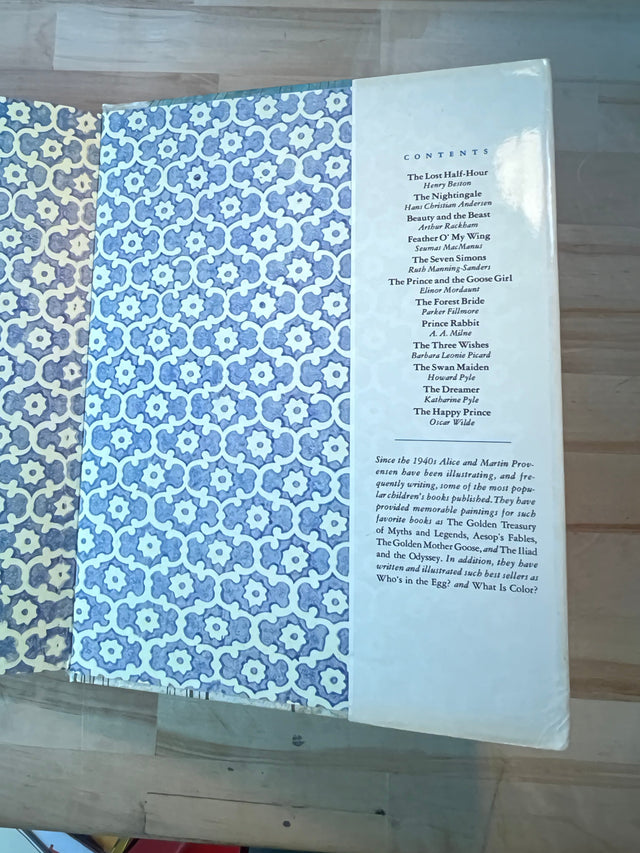 CONTENTS
The Lost Half-Hour
Henry Beston
The Nightingale
Hans Christian Andersen
Beauty and the Beast
Arthur Rackham
Feather O' My Wing
Seumas MacManus
The Seven Simons
Ruth Manning-Sanders
The Prince and the Goose Girl
Elinor Mordaunt
The Forest Bride
Parker Fillmore
Prince Rabbit
A. A. Milne
The Three Wishes
Barbara Leonie Picard
The Swan Maiden
Howard Pyle
The Dreamer
Katharine Pyle
The Happy Prince
Oscar Wilde
Since the 1940s Alice and Martin Prov-
ensen have been illustrating, and fre-
quently writing, some of the most popu-
lar children's books published. They have
provided memorable paintings for such
favorite books as The Golden Treasury
of Myths and Legends, Aesop's Fables,
The Golden Mother Goose, and The Iliad
and the Odyssey. In addition, they have
written and illustrated such best sellers as
Who's in the Egg? and What Is Color?